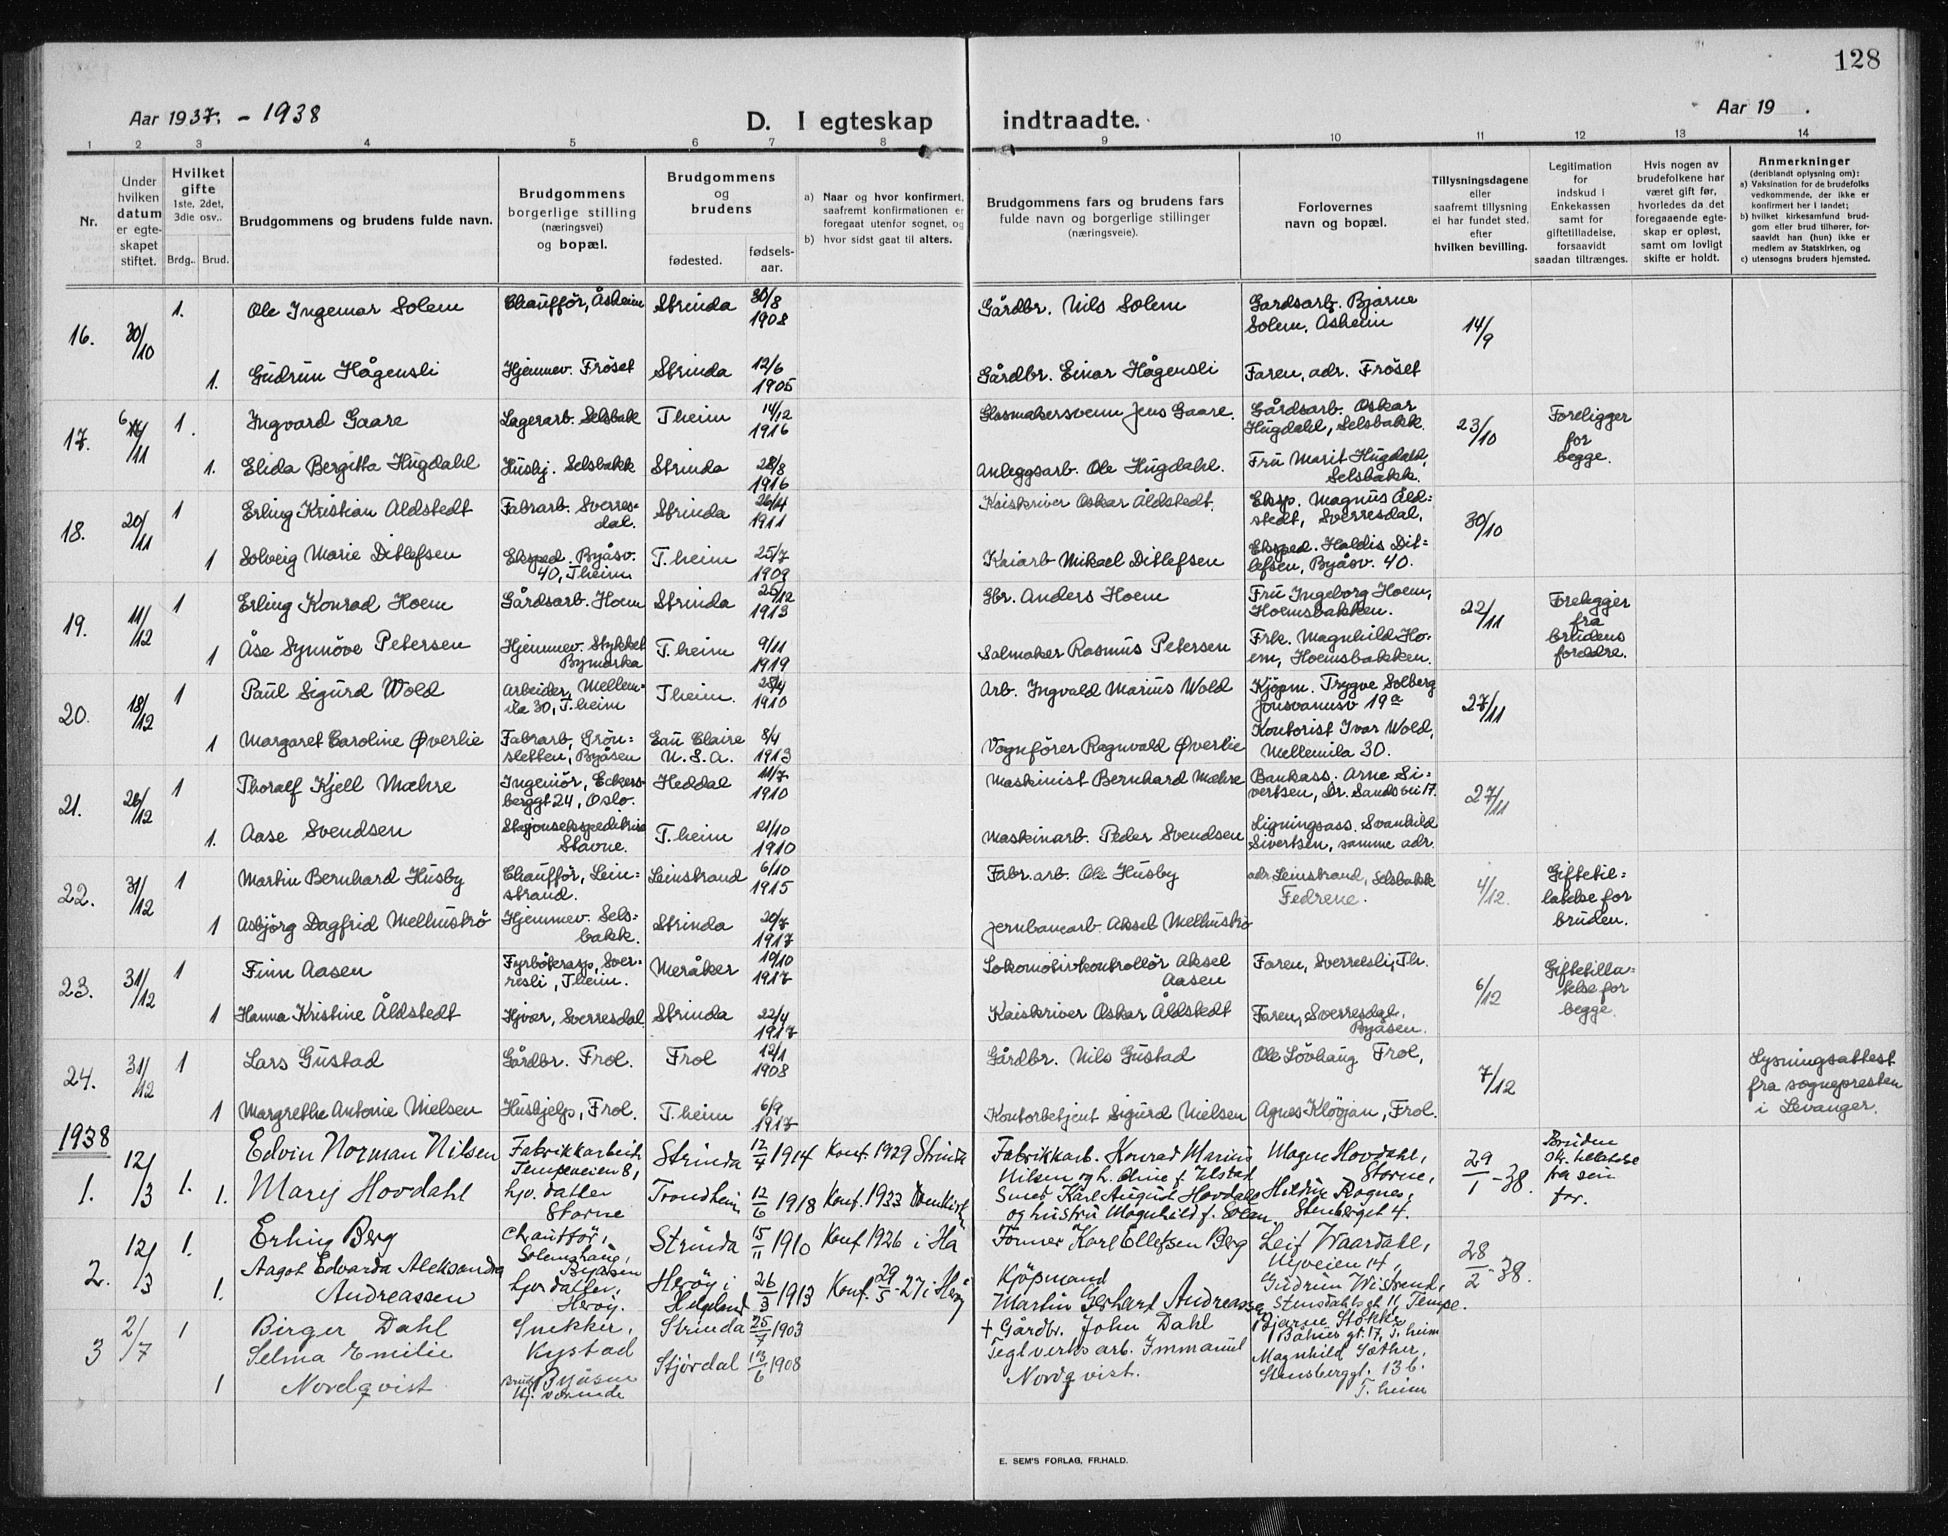 128
Aar 1937. - 1938
D. I egteskap indtraadte.
Aar 19 .
1 2 3 4 5 6 7 8 9 10 11 12 13 14
Nr.
Under hvilken datum er egteskapet stiftet.
Hvilket gifte 1ste, 2det, 3die osv..
Brdg.. Brud.
Brudgommens og brudens fulde navn.
Brudgommens borgerlige stilling (næringsvei) og bopæl.
Brudgommens og brudens
fødested.
fødselsaar.
a) Naar og hvor konfirmert, saafremt konfirmationen er foregaat utenfor sognet, og
b) hvor sidst gaat til alters.
Brudgommens fars og brudens fars fulde navn og borgerlige stillinger (næringsveie).
Forlovernes navn og bopæl.
Tillysningsdagene eller saafremt tillysning ei har fundet sted, efter hvilken bevilling.
Legitimation for indskud i Enkekassen samt for giftetilladelse, forsaavidt saadan tiltrænges.
Hvis nogen av brudefolkene har været gift før, hvorledes da det foregaaende egteskap er opløst, samt om lovligt skifte er holdt.
Anmerkninger
(deriblandt oplysning om):
a) Vaksination for de brudefolks vedkommende, der ikke er konfirmert her i landet;
b) hvilket kirkesamfund brudgom eller brud tilhører, forsaavidt han (hun) ikke er medlem av Statskirken, og
c) utensogns bruders hjemsted.
16. 30/10 1. Ole Ingemar Solem Chauffør, Åsheim Strinda 30/8 1908 Gårdbr. Nils Solem Gardsarb. Bjarne Solem, Asheim 14/9
1. Gudrun Hågensli Hjemmev. Frøset Strinda 12/6 1905 Gårdbr. Einar Hågensli Faren, adr. Frøset
17. 6/11 1. Ingvard Gaare Lagerarb. Selsbak T.heim 14/12 1916 Glasmakersvenn Jens Gaare. Gårdsarb. Oskar Hugdahl, Selsbakk. 23/10 Foreligger for begge.
1. Elida Bergitta Hugdahl Hushj. Selsbakk Strinda 28/8 1916 Anleggsarb. Ole Hugdahl. Fru Marit Hugdahl, Selsbakk.
18. 20/11 1 Erling Kristian Aldstedt Fabrarb. Sverresdal. Strinda 26/4 1911 Kaiskriver Oskar Åldstedt. Eksp. Magnus Åld=stedt, Sverresdal, 30/10
1 Solveig Marie Ditlefsen Eksped. Byåsv. 40, T.heim T.heim 25/7 1909 Kaiarb Mikael Ditlefsen Eksped. Haldis Dit=lefsen, Byåsv. 40.
19. 11/12 1 Erling Konrad Hoem Gårdsarb. Hoem Strinda 26/12 1913 Gbr. Anders Hoem Fru Ingeborg Hoem, Hoemsbakken. 22/11 Foreligger fra brudens foreldre.
1 Åse Synnöve Petersen Hjemmev. Stykket Bymarka T.heim 9/11 1919 Salmaker Rasmus Petersen Frk. Magnhild Hoem, Hoemsbakken.
20. 18/12 1 Paul Sigurd Wold Arbeider, Mellemila 30, T.heim T.heim. 28/4 1910 Arb. Ingvald Marius Wold Kjøpm. Trygve Solberg Jonsvannsv 19a 27/11
1 Margaret Caroline Øverlie Fabrarb, Grön=sletten, Byåsen Eau Claire U.S.A. 8/4 1913 Vognfører Ragnvald Øverlie Kontorist Ivar Wold, Mellemila 30.
21. 26/12 1 Thoralf Kjell Mæhre Ingeniör, Eckersberggt 24, Oslo. Heddal 11/7 1910 Maskinist Bernhard Mæhre Bankass. Arne Si=vertsen, Dr. Sands vei 17. 27/11
1. Aase Svendsen Stasjonsekspeditrise Stavne. T.heim 21/10 1910 Maskinarb. Peder Svendsen Ligningsass. Svanhild Sivertsen, samme adr.
22. 31/12 1 Martin Bernhard Husby Chauffør, Lein=strand. Leinstrand 6/10 1915 Fabr.arb. Ole Husby adr. Leinstrand, Selsbakk Fedrene. 4/12. Giftetil=latelse for bruden.
1 Asbjörg Dagfrid Mellhustrø Hjemmev. Sels=bakk. Strinda 20/7 1917 Jernbanearb. Aksel Mellhustrø
23. 31/12 1 Finn Aasen Fyrbøterasp, Sver=resli, T.heim. Meråker 10/10 1917 Lokomotivkontrollør Aksel Aasen Faren, Sverresli, Th. 6/12 Giftetilla=telse for begge.
1 Hanna Kristine Åldstedt Hjvær, Sverresdal Strinda 22/4 1917 Kaiskriver Oskar Åldstedt Faren, Sverresdal, Byåsen.
24. 31/12 1 Lars Gustad Gårdbr. Frol. Frol 12/1 1908 Gårdbr. Nils Gustad Ole Lövhaug Frol, 7/12 Lysningsattest fra sognepresten i Levanger.
1 Margrethe Antonie Nielsen Hushjelp, Frol. T.heim 6/9 1917 Kontorbetjent Sigurd Nielsen Agnes Kløvjan, Frol.
1938
1. 12/3 1. Edvin Norman Nilsen Fabrikkarbeid. Tempeveien 8, Strinda 12/4 1914 Konf. 1929 Strinda Fabrikkarb. Konrad Marius Nilsen og h. Magne Hovdahl, Storne, 29/1-38. Bruden fra sin far.
1. Mary Hovdahl hjv. datter Storne Trondheim 12/6 1918 Konf. 1933 Smed Karl August Hovdahl og hustru Magnhild f. Solem Hildur Rognes, Stenberget 4.
2. 12/3 1. Erling Berg Chauffør, Solemshaug, Byåsen Strinda 15/11 1910 Konf 1926 i Ha Karl Ellefsen Berg Leif Waardahl, Nyveien 14, 28/2-38.
1. Aagot Edvarda Aleksandra Andreassen hjv datter, Herøy. Herøy i Helgeland 26/3 1913 Konf. 29/5-27 i Herøy Kjøpmand Martin Gerhart Andreassen Gudrun Wistrand, Stensdahlsgt 11, Tempe.
3 2/7 1 Birger Dahl Snekker, Kystad Strinda 25/7 1903 + Gårdbr. John Dahl Bjarne Stokke Båhus gt. 17, T.heim
1 Selma Emilie Nordqvist Byåsen Stjørdal 13/6 1908 Teglverksarb. Immanuel Nordqvist. Magnhild Sæther, Stensberggt. 13 b. T.heim
E. SEM'S FORLAG, FR.HALD.